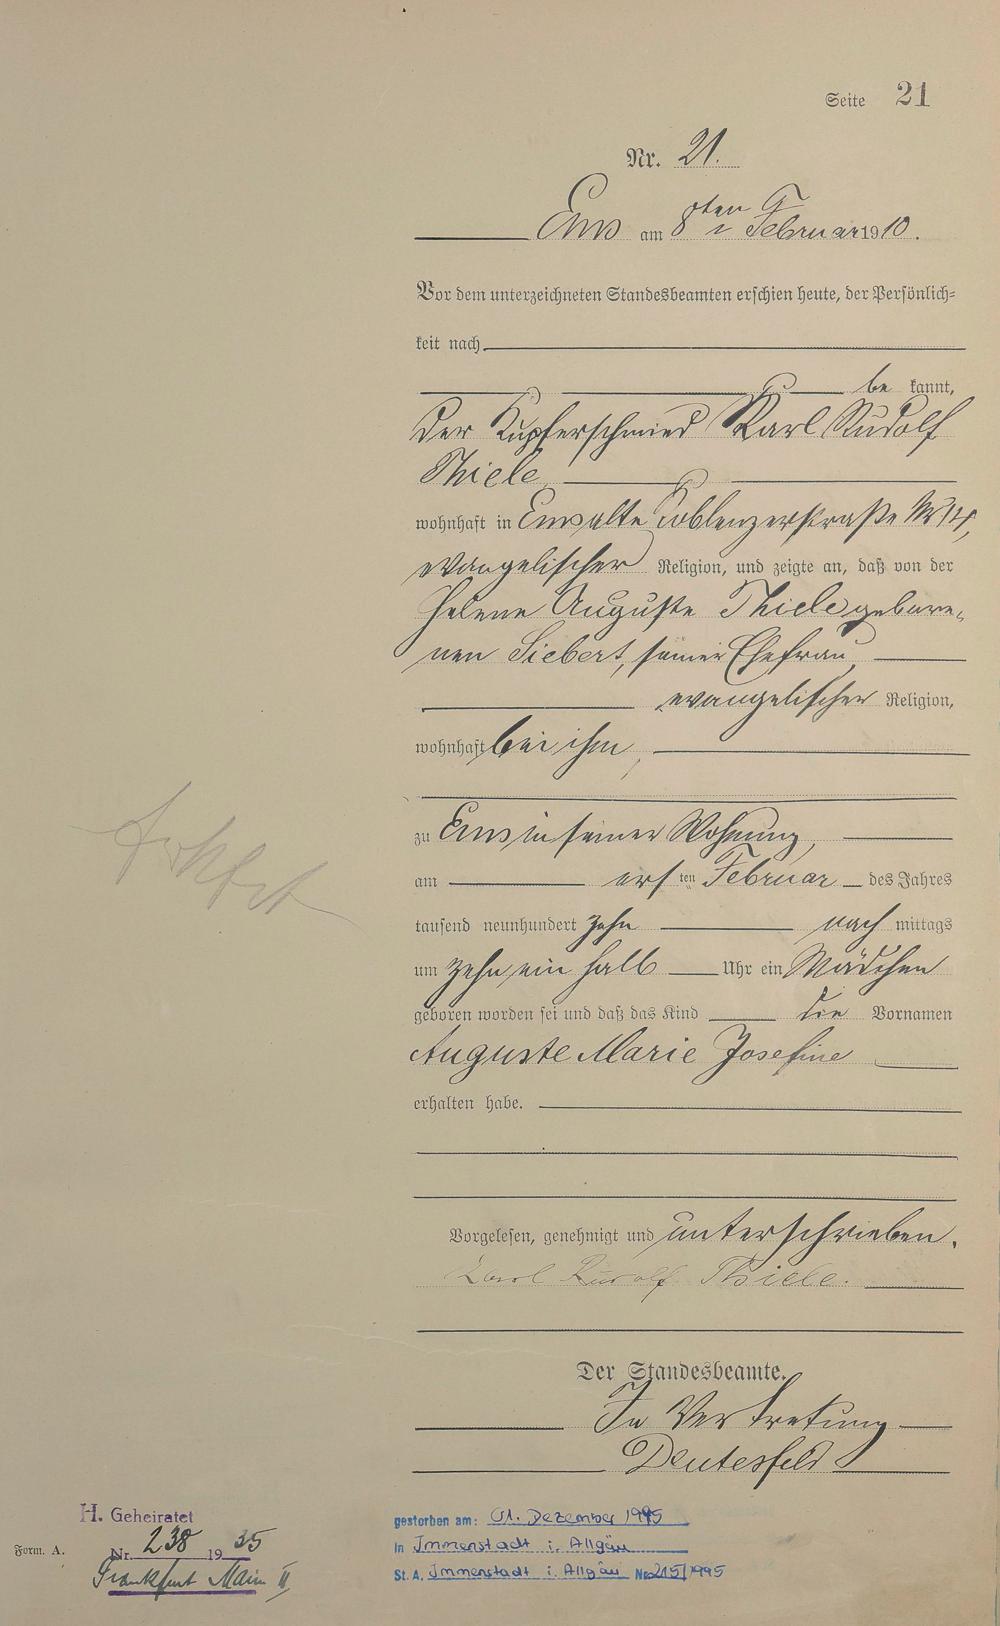 Seite 21
Nr. 21.
Ems am 8ten Februar 1910.
Vor dem unterzeichneten Standesbeamten erschien heute, der Persönlich-
keit nach
be kannt,
der Kupferschmied Karl Rudolf
Thiele
wohnhaft in Ems alte Coblenzerstraße Nr 14,
evangelischer Religion, und zeigte an, daß von der
Helene Auguste Thiele gebore-
nen Siebert, seiner Ehefrau
evangelischer Religion,
wohnhaft bei ihm,
zu Ems in seiner Wohnung,
am ersten Februar des Jahres
tausend neunhundert zehn nach mittags
um zehn ein halb Uhr ein Mädchen
geboren worden sei und daß das Kind die Vornamen
Auguste Marie Josefine
erhalten habe.
Vorgelesen, genehmigt und unterschrieben.
Karl Rudolf Thiele.
Der Standesbeamte.
In Vertretung
Deutesfeld
H. Geheiratet
Form. A.
Nr. 238 1935
Frankfurt Main II
gestorben am: 01. Dezember 1995
in Immenstadt i. Allgäu
St. A. Immenstadt i. Allgäu Nr. 215/1995